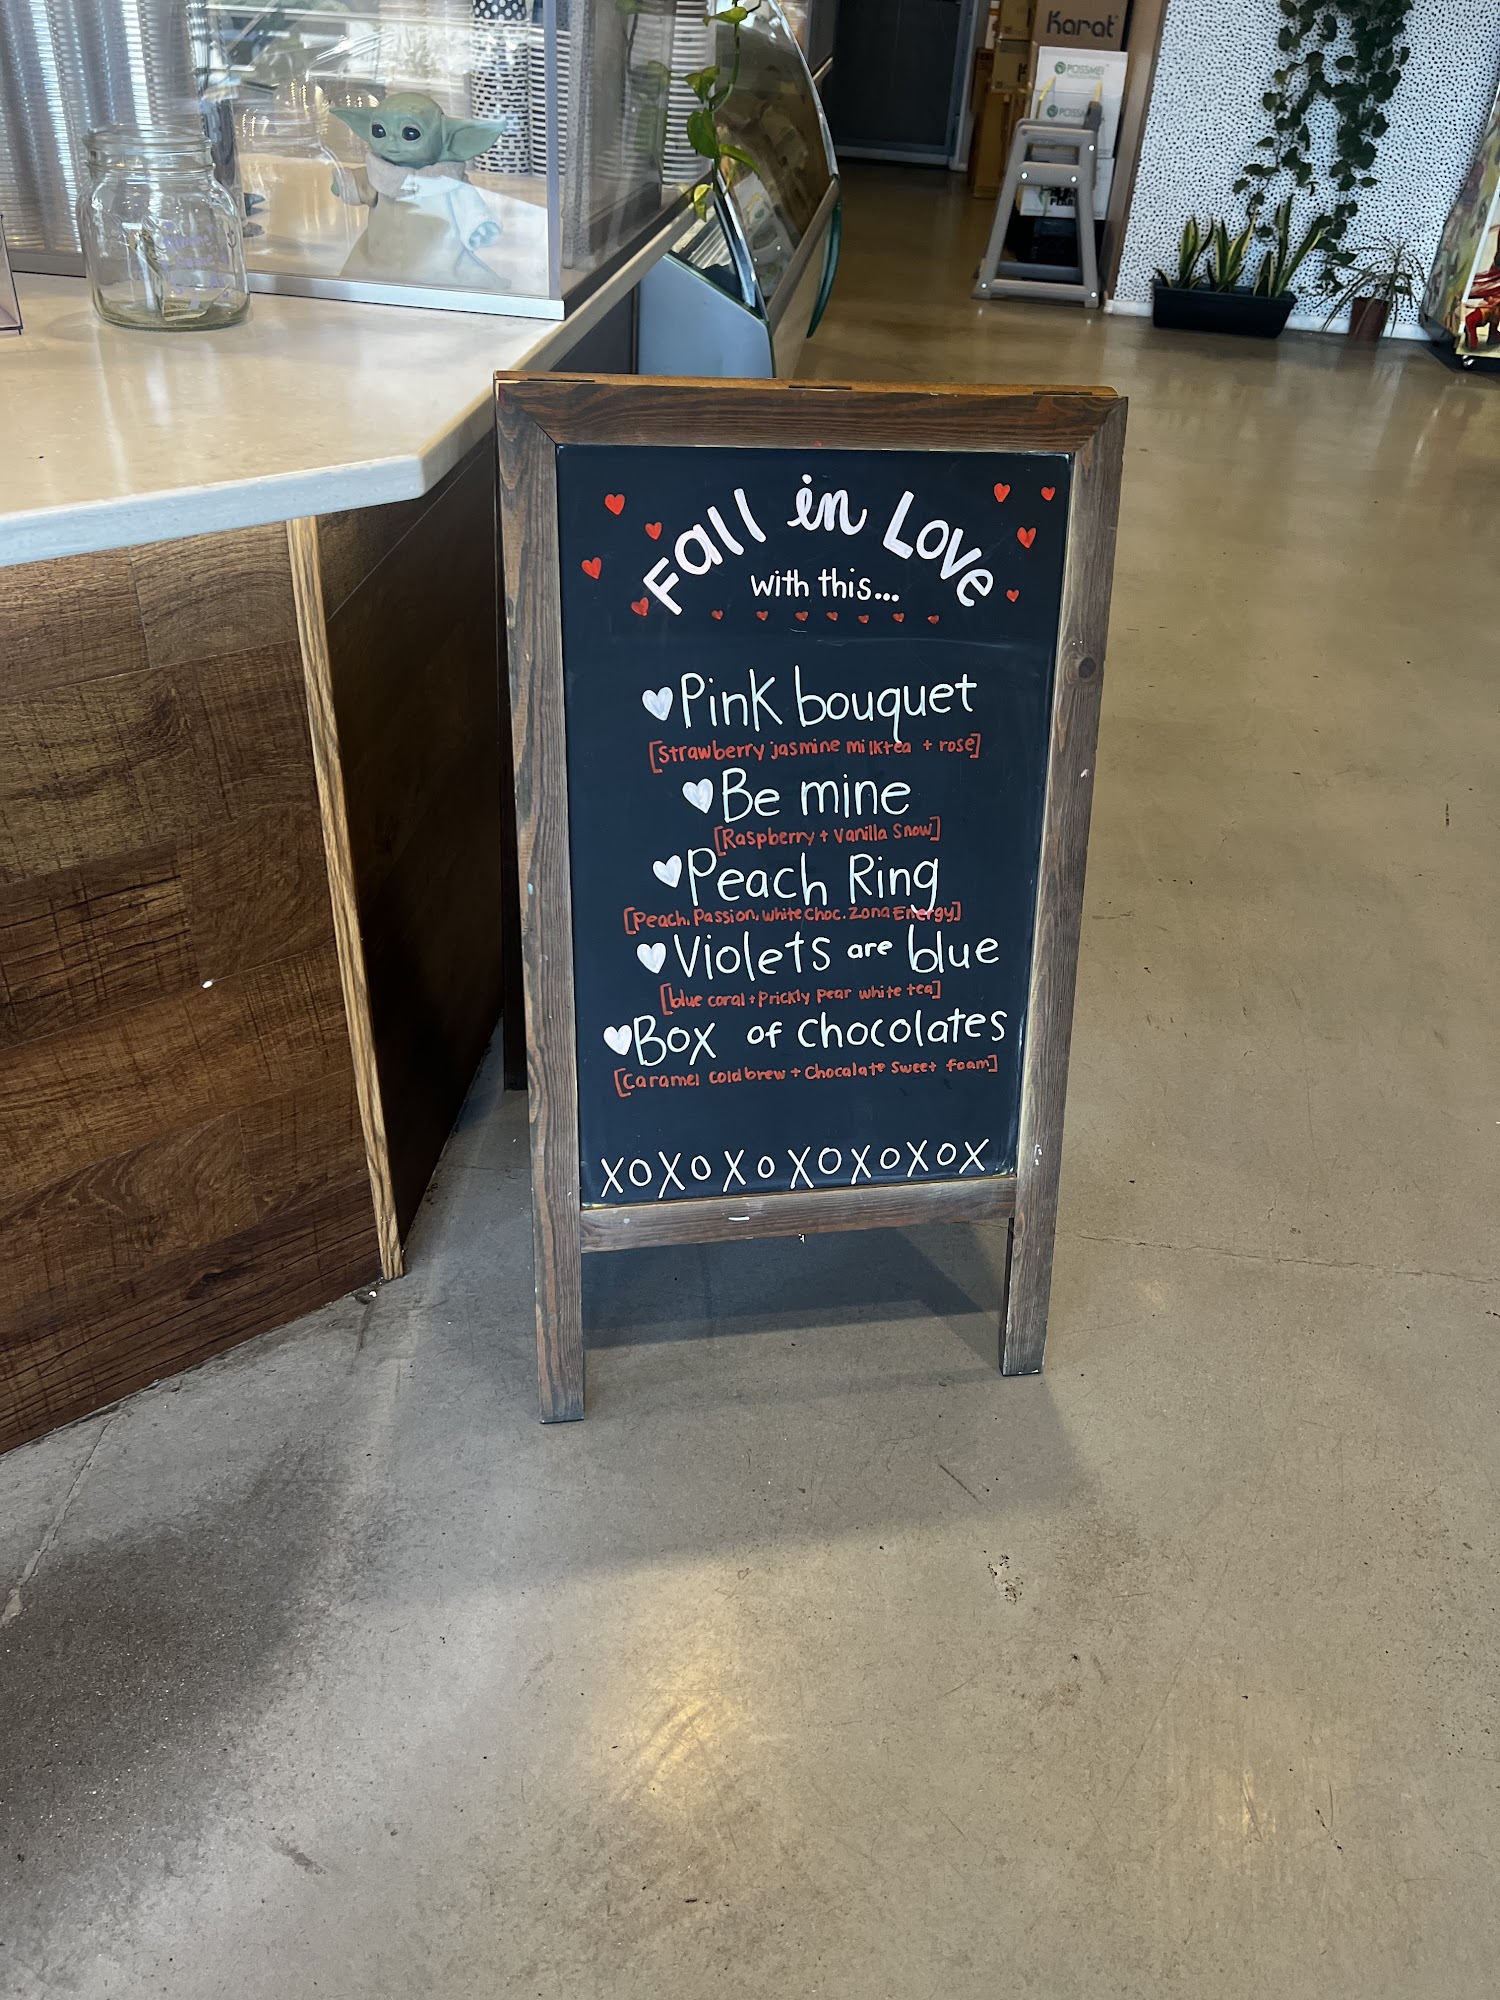 Karat
POSSMEI
Fall in Love
with this...
Pink bouquet
[Strawberry jasmine milktea + rose]
Be mine
[Raspberry + Vanilla Snow]
Peach Ring
[Peach, Passion, White Choc. Zona Energy]
Violets are blue
[blue coral + Prickly pear white tea]
Box of chocolates
[Caramel Cold brew + Chocolate Sweet foam]
XOXOXOXOXOXOX